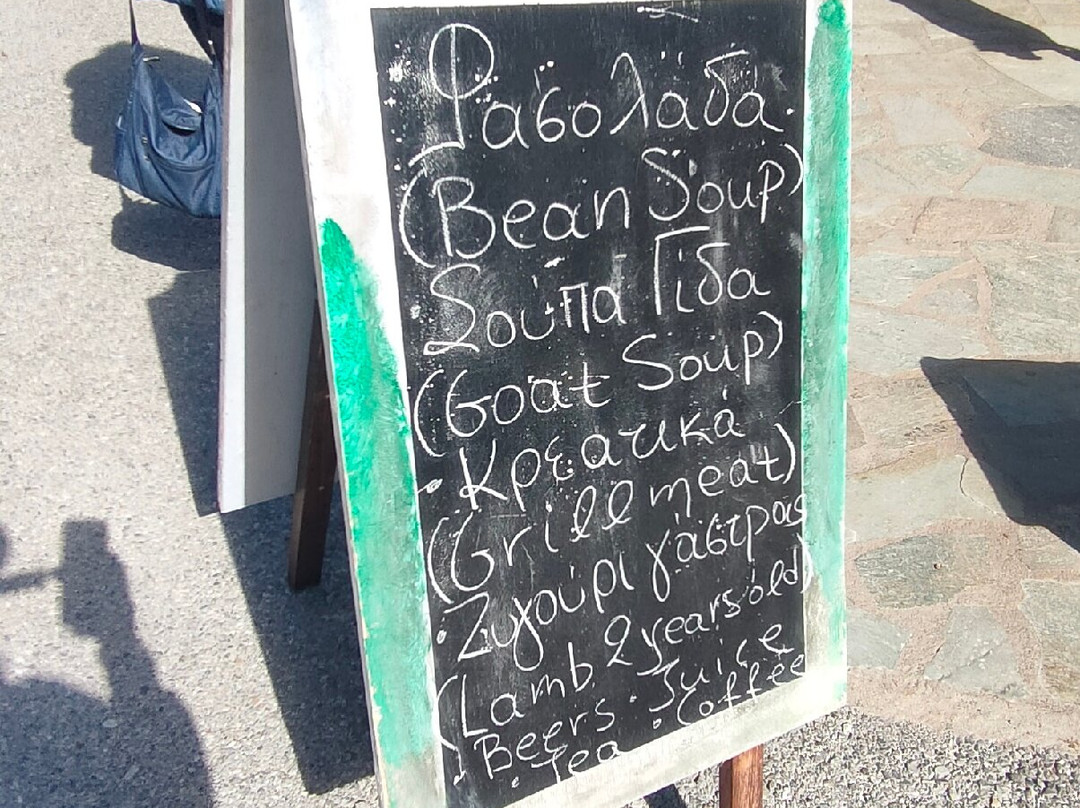 Φασολάδα.
(Bean Soup)
Σούπα Γίδα
(Goat Soup)
· Κρεατικά
(Grill meat)
· Ζυγούρι γάστρας
(Lamb 2 years old)
· Beers · Juice
· Tea · Coffee